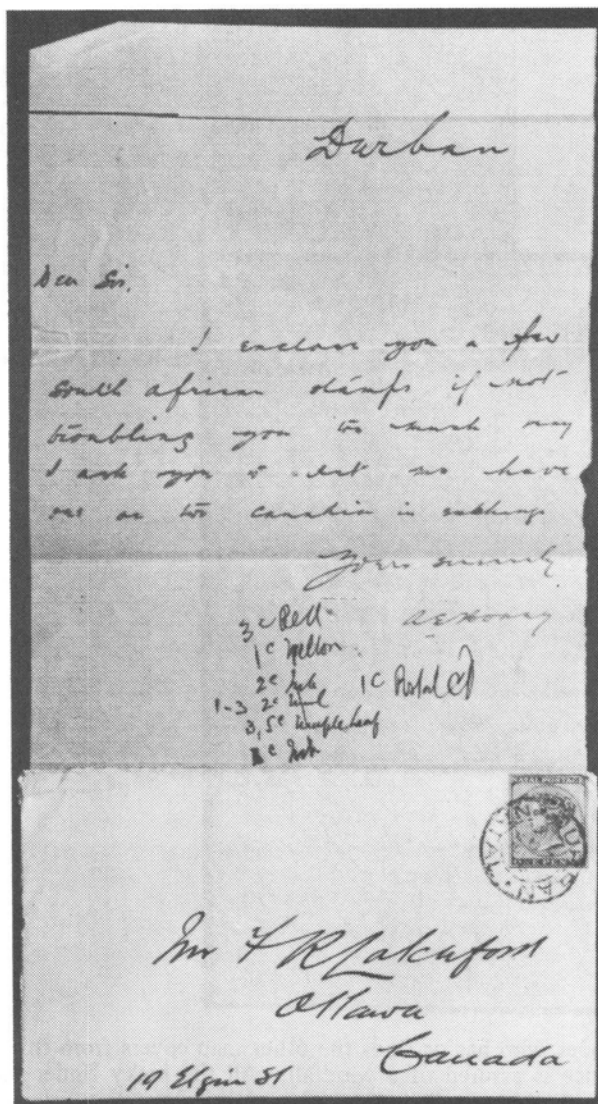 Durban
Dear Sir,
I enclose you a few
South African stamps if not
troubling you too much may
I ask you to let me have
one or two canadian in exchange
Yours sincerely
3c Bell
1c
2c 1c Postal Cd
1-3 2c
3, 5c Maple Leaf
c
NATAL POSTAGE
ONE PENNY
DURBAN
NATAL
Mr F R Lakeford
Ottawa
Canada
19 Elgin St